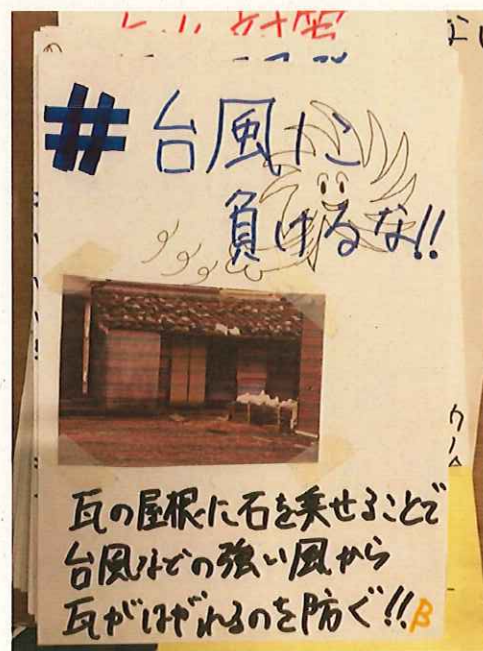 #台風に
負けるな!!
瓦の屋根に石を乗せることで
台風などの強い風から
瓦がはがれるのを防ぐ!!β